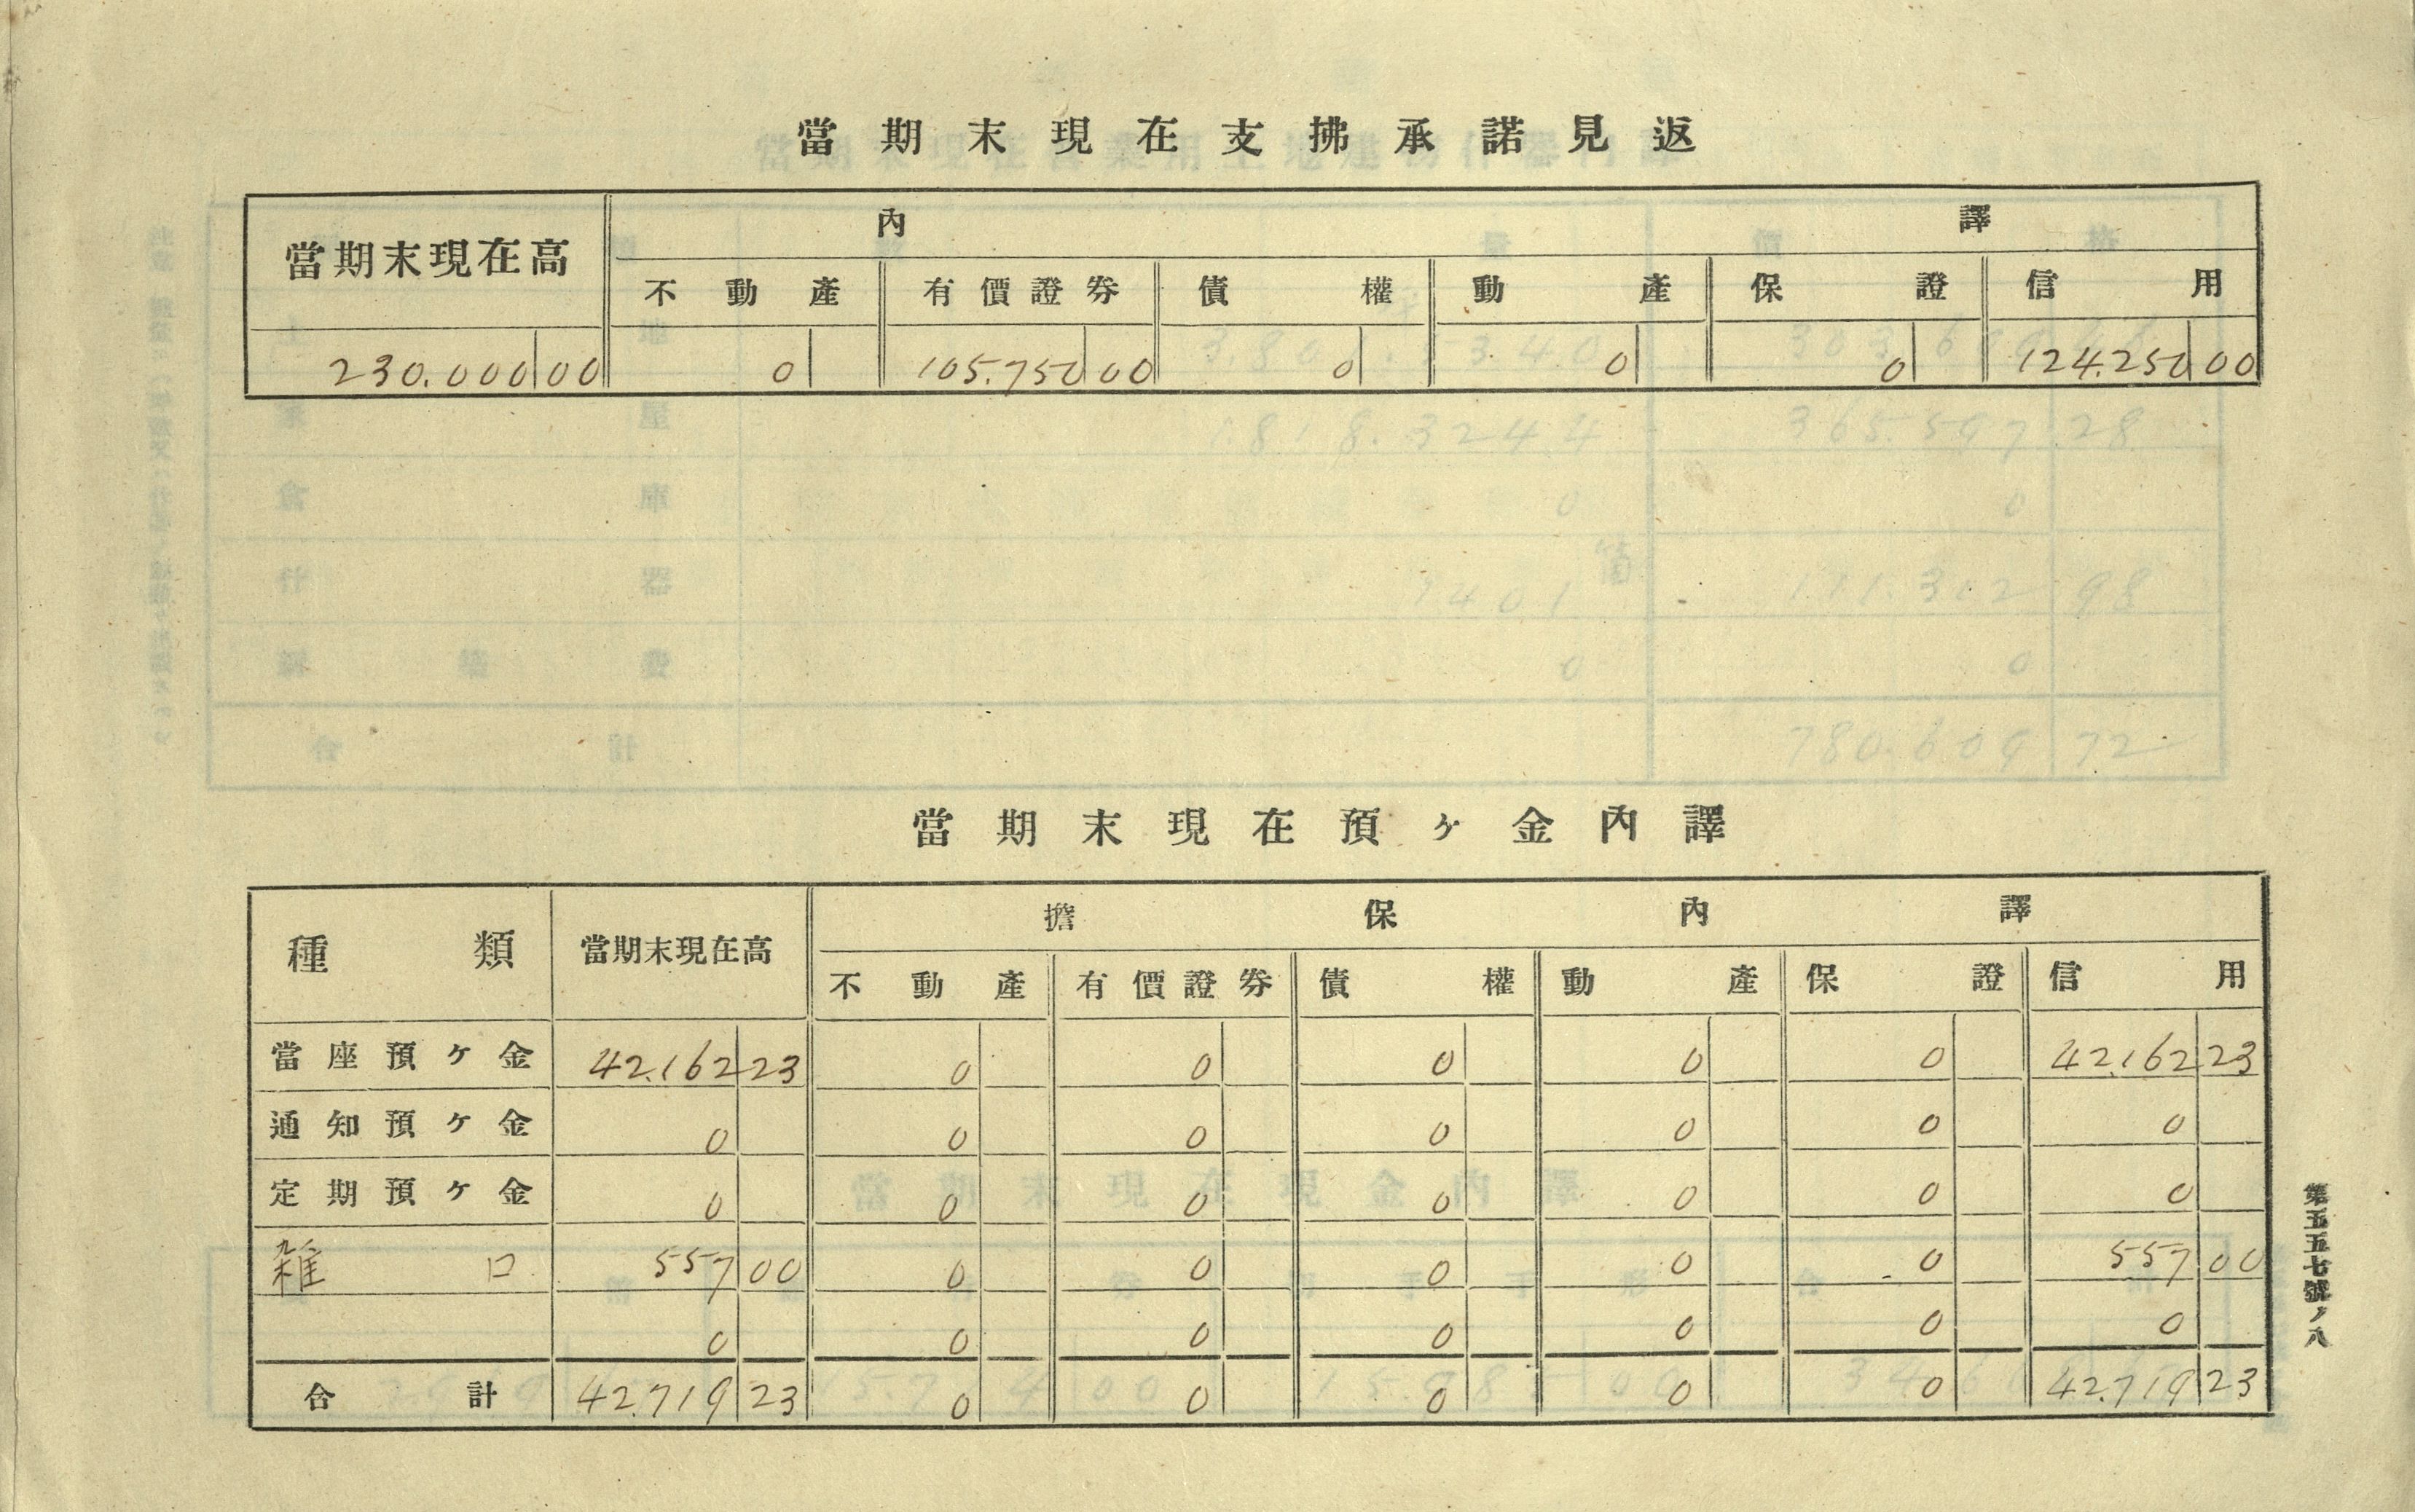 當期末現在支拂承諾見返
當期末現在高 內譯
不動產 有價證券 債權 動產 保證 信用
230.000 00 0 105.750 00 0 0 0 124.250 00
當期末現在預ヶ金內譯
種類 當期末現在高 擔保內譯
不動產 有價證券 債權 動產 保證 信用
當座預ヶ金 42.162 23 0 0 0 0 0 42.162 23
通知預ヶ金 0 0 0 0 0 0 0
定期預ヶ金 0 0 0 0 0 0 0
雑口 557 00 0 0 0 0 0 557 00
0 0 0 0 0 0 0
合計 42.719 23 0 0 0 0 0 42.719 23
第五五七號ノ八